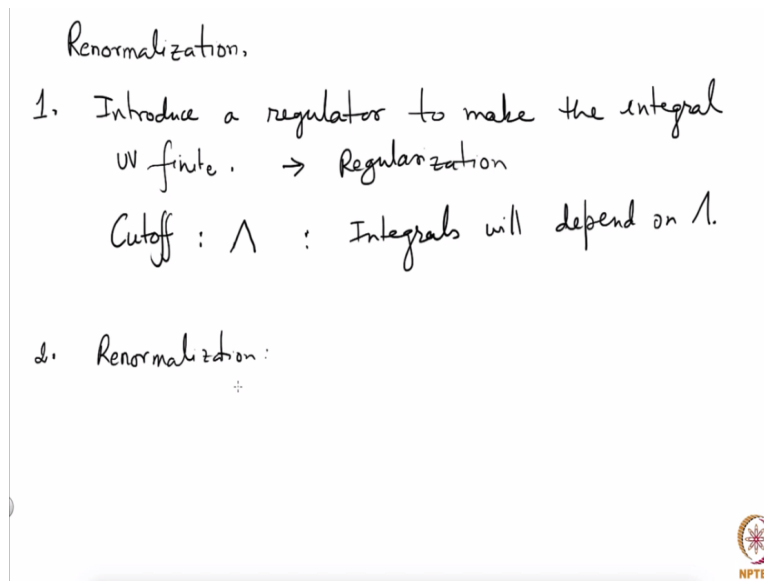 Renormalization,
1. Introduce a regulator to make the integral
UV finite. → Regularization
Cutoff : Λ : Integrals will depend on Λ.
2. Renormalization:
NPTE